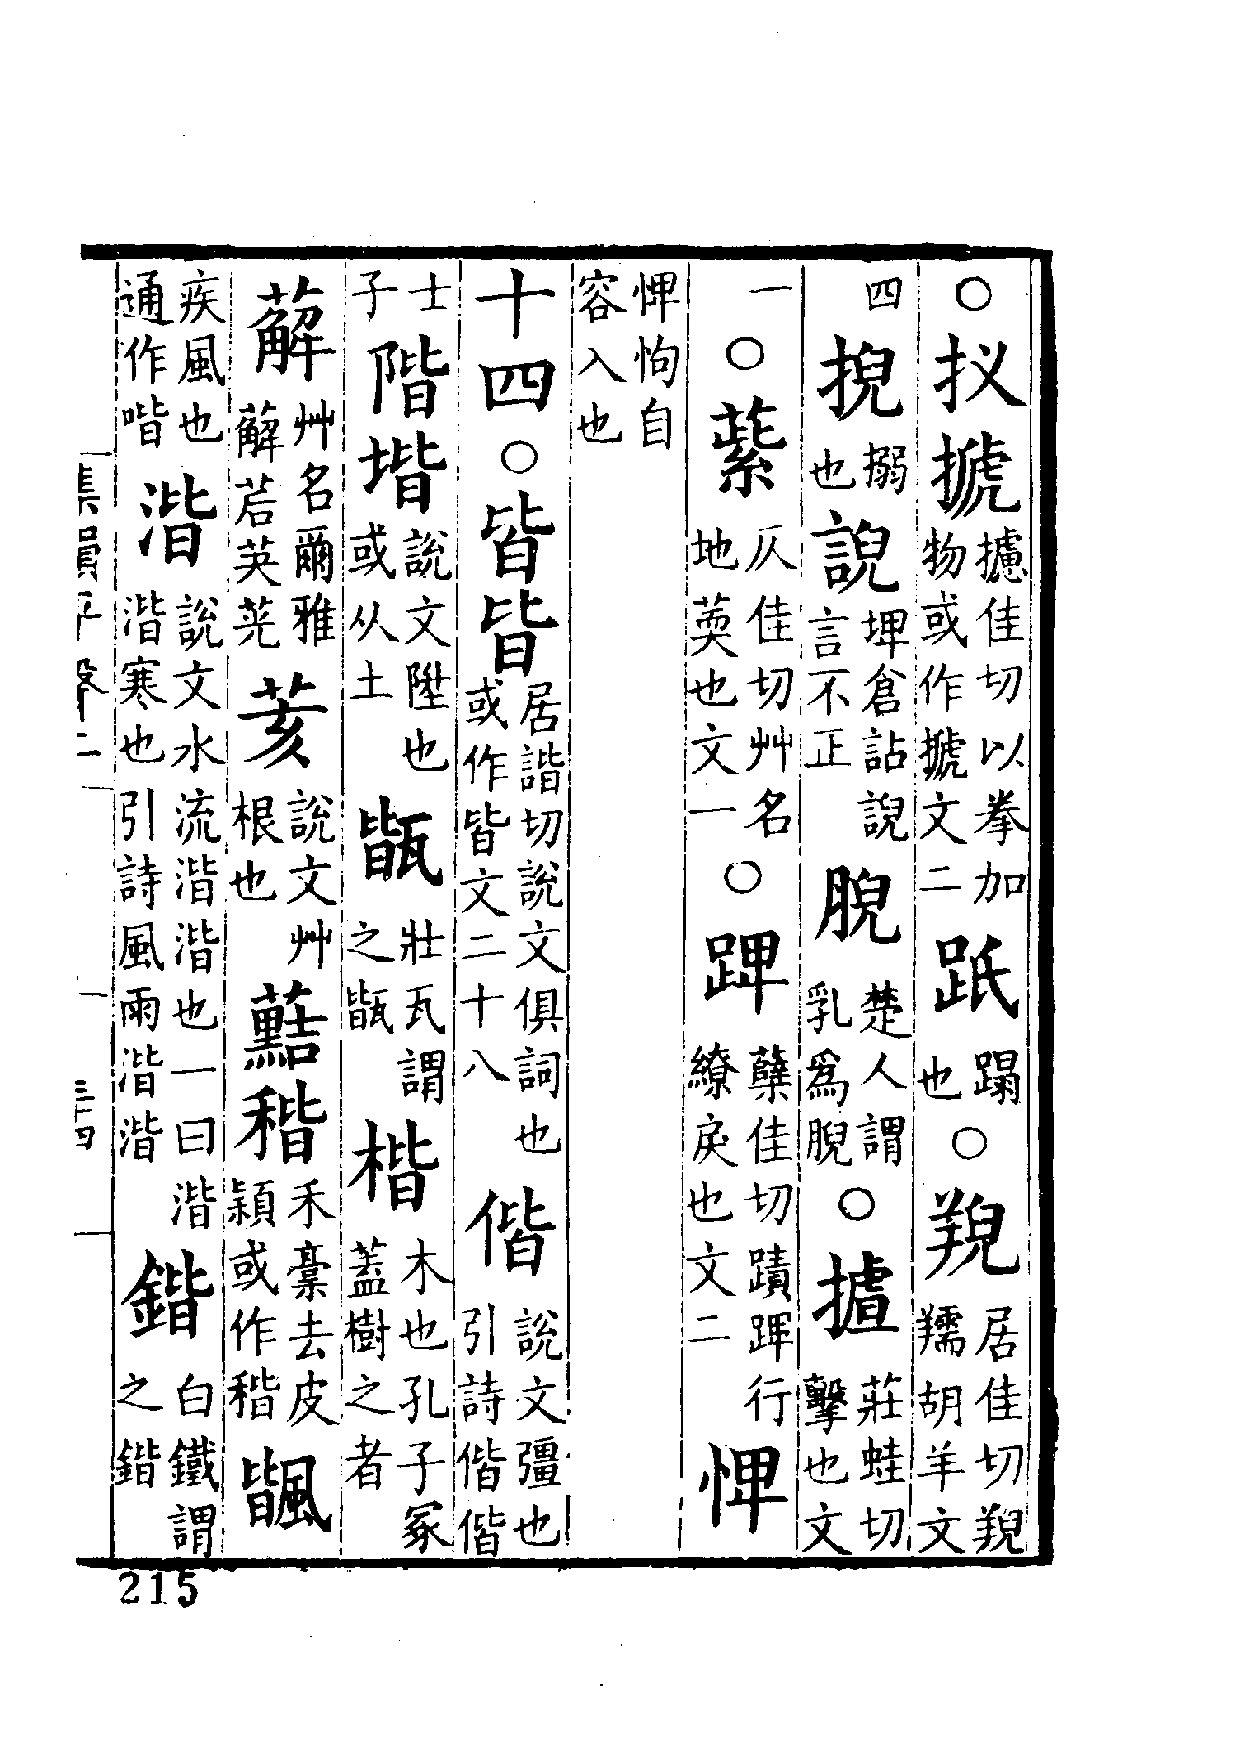 ○扠摅攄佳切以拳加物或作摅文二䟡蹋也○羪居佳切羪羺胡羊文
四掜搦也䛏埤倉詀䛏言不正腉楚人謂乳爲腉○摣莊蛙切擊也文
一○䔝仄佳切艸名地䓴也文一○䠋蘖佳切蹟䠋行繚戾也文二㥄
㥄怐自容入也
十四○皆皆居諧切說文俱詞也或作皆文二十八偕說文彊也引詩偕偕
士子階堦說文陞也或从土㼮壯瓦謂之㼮楷木也孔子冢蓋樹之者
薢艸名爾雅薢茩英茪荄說文艸根也藍稭禾稾去皮穎或作稭𩘅
疾風也通作喈湝說文水流湝湝也一曰湝湝寒也引詩風雨湝湝鍇白鐵謂之鍇
集韻平聲二
三十四
215